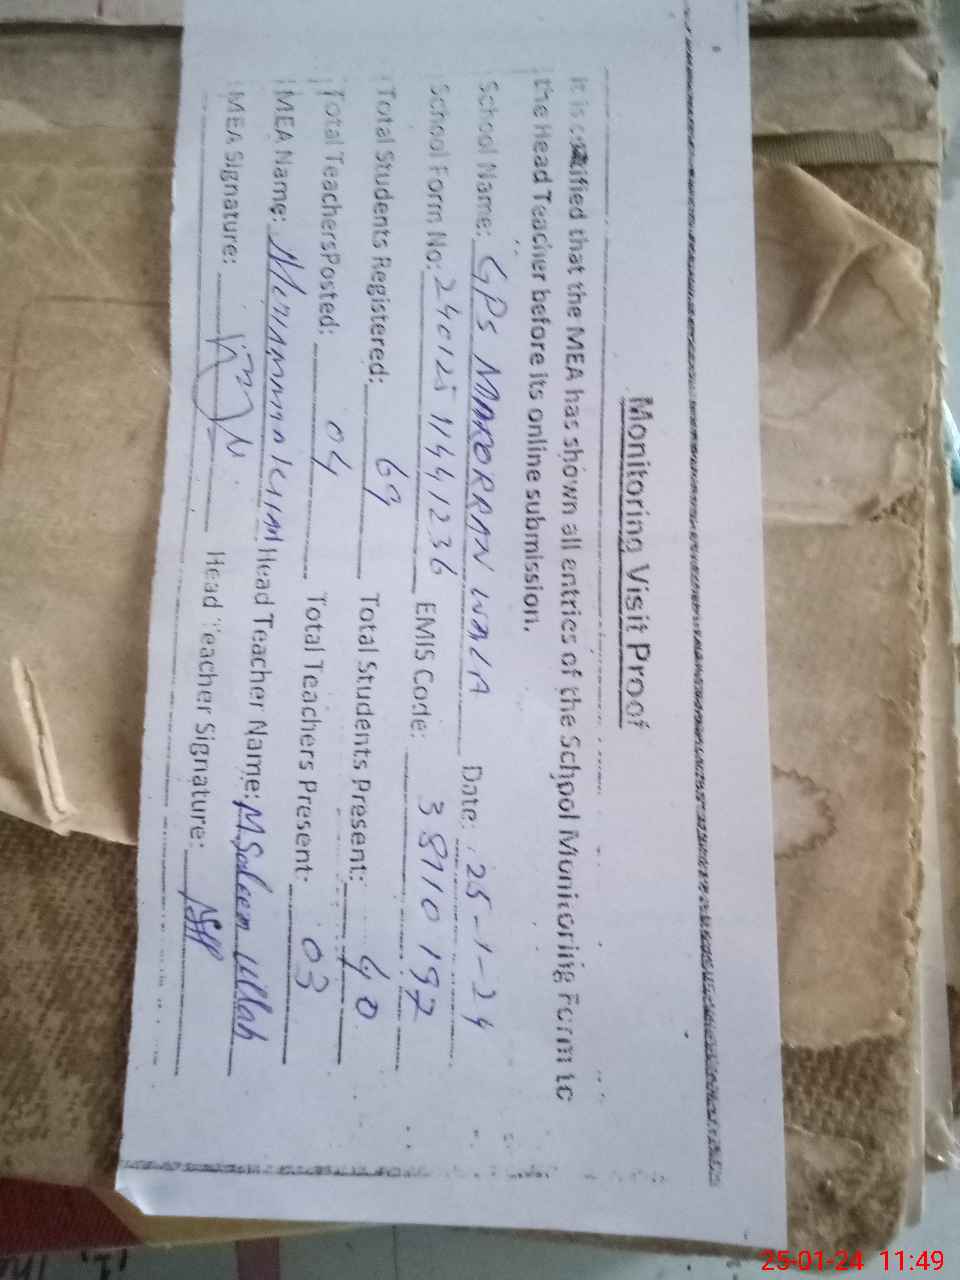 Monitoring Visit Proof
It is certified that the MEA has shown all entries of the School Monitoring Form to
the Head Teacher before its online submission.
School Name: GPS MAKORRAN WALA Date: 25-1-24
School Form No: 24012511441236 EMIS Code: 38910197
Total Students Registered: 69 Total Students Present: 40
Total TeachersPosted: 04 Total Teachers Present: 03
MEA Name: MUHAMMAD KHAN Head Teacher Name: M.Saleem Ullah
MEA Signature: Head Teacher Signature:
25-01-24 11:49